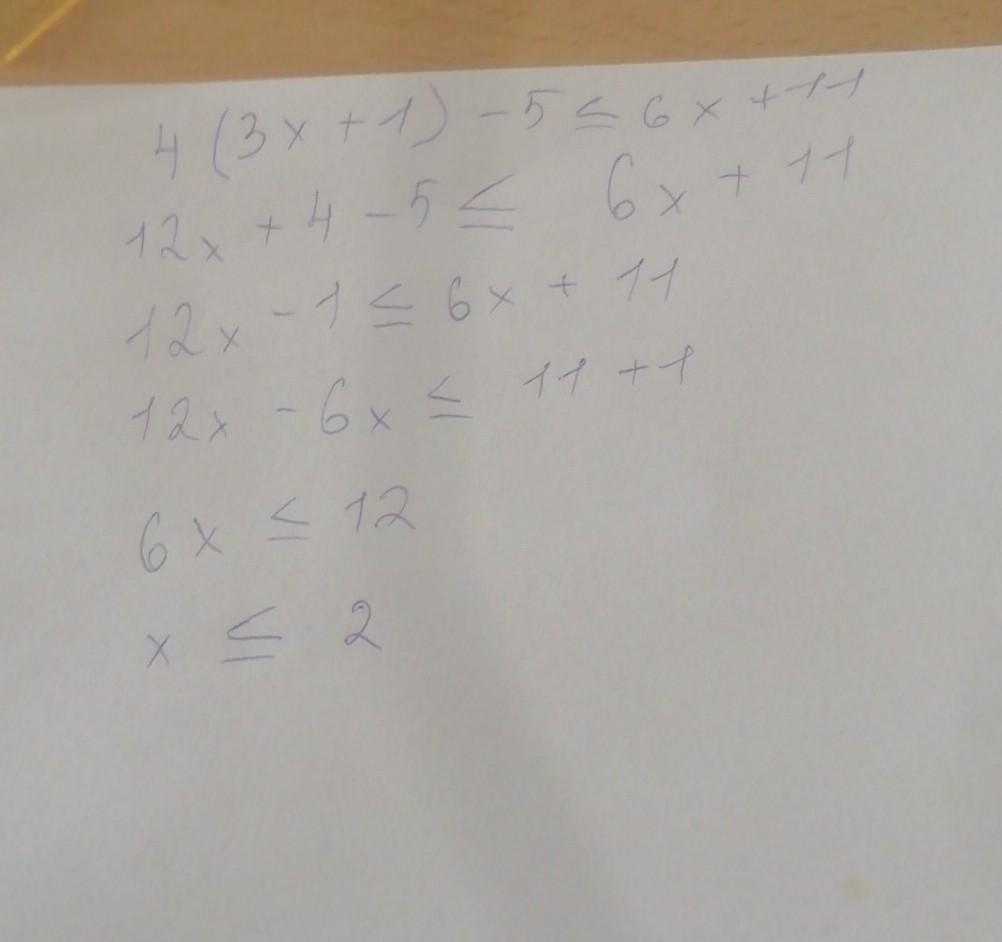 4 (3x + 1) - 5 ≤ 6x + 11
12x + 4 - 5 ≤ 6x + 11
12x - 1 ≤ 6x + 11
12x - 6x ≤ 11 + 1
6x ≤ 12
x ≤ 2